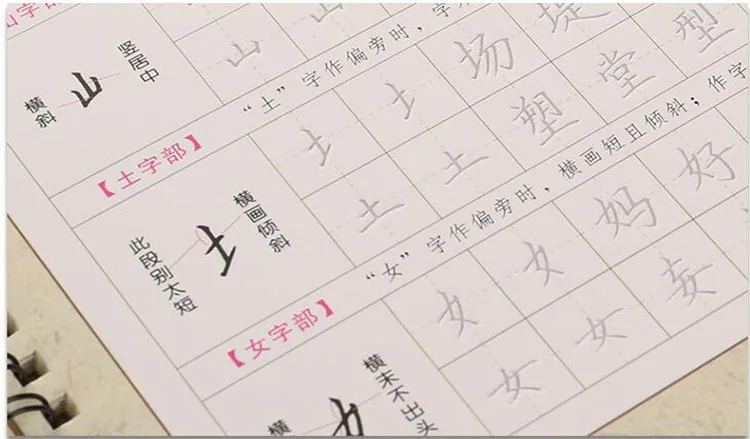 山字部
竖居中
横斜
山
山 山
“土”字作偏旁时，
【土字部】
土 土 场 堤
土 土 塑 堂 型
横画倾斜
此段别太短
土
“女”字作偏旁时，横画短且倾斜；作字
【女字部】
女 女 妈 好
女 女 妄
横末不出头
横
女